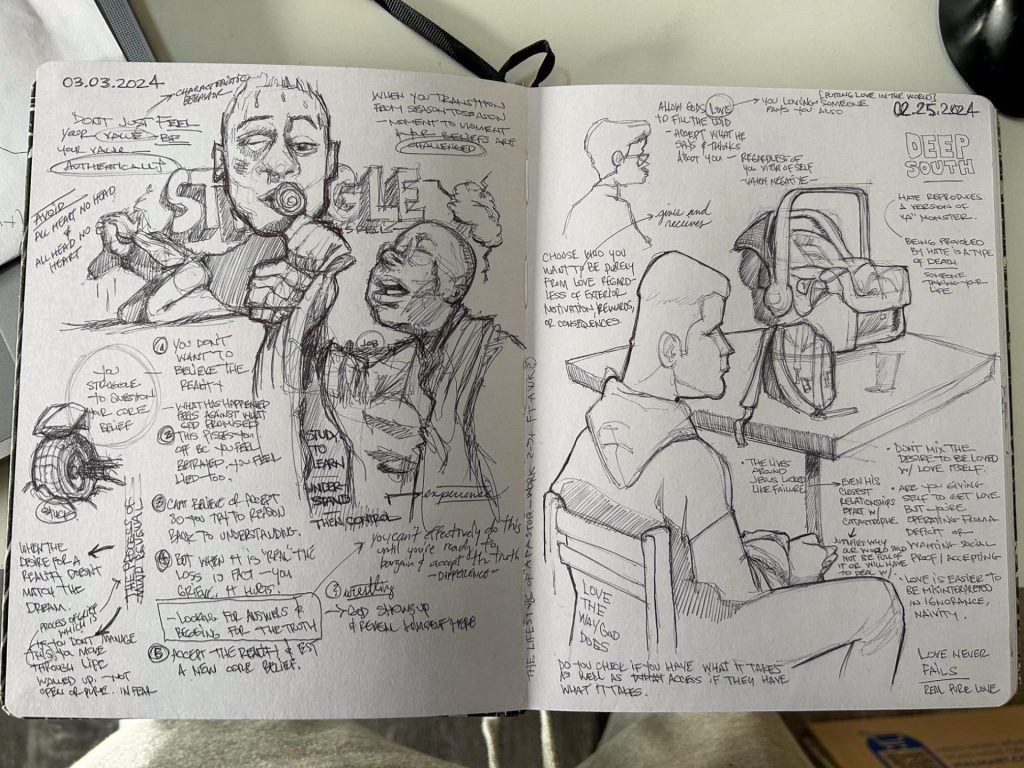 03.03.2024
CHARACTERISTIC
BEHAVIOR
DON'T JUST FEEL
YOUR VALUE BE
YOUR VALUE
AUTHENTICALLY
WHEN YOU TRANSITION
FROM SEASON TO SEASON
- MOMENT TO MOMENT
OUR BELIEFS ARE
CHALLENGED
AVOID
ALL HEART NO HEAD
&
ALL HEAD NO
HEART
STRUGGLE
JOB
YOU
STRUGGLE
TO QUESTION
YOUR CORE
BELIEF
① YOU DON'T
WANT TO
BELIEVE THE
REALITY
- WHAT HAS HAPPENED
GOES AGAINST WHAT
GOD PROMISED
② THIS PISSES YOU
OFF BC YOU FEEL
BETRAYED. YOU FEEL
LIED TOO.
③ CAN'T BELIEVE OR ACCEPT
SO YOU TRY TO REASON
BACK TO UNDERSTANDING.
④ BUT WHEN IT IS "REAL" THE
LOSS IS FACT - YOU
GRIEVE, IT HURTS.
- LOOKING FOR ANSWERS &
BEGGING FOR THE TRUTH
⑤ ACCEPT THE REALITY & EST
A NEW CORE BELIEF.
STUDY
TO
LEARN
UNDER
STAND
THEN CONTROL
experience
you can't effectively do this
until you're ready to
bargain & accept the truth
- DIFFERENCE -
wrestling
GOD SHOWS UP
& REVEAL HIMSELF HERE
WHEN THE
DESIRE FOR A
REALITY DOESN'T
MATCH THE
DREAM.
PROCESS OF GRIEF
WHICH IS
IF YOU DON'T MANAGE
THIS YOU MOVE
THROUGH LIFE
WALLED UP - NOT
OPEN OR PURE. IN FEAR
THE LIFESTYLE OF A PASTOR
[PUTTING LOVE IN THE WORLD]
02.25.2024
ALLOW GODS LOVE
TO FILL THE VOID
- ACCEPT WHAT HE
SAYS & THINKS
ABOUT YOU - REGARDLESS OF
YOU VIEW OF SELF
WHEN NEGATIVE -
YOU LOVING SOMEONE
FILLS YOU ALSO
gives and
receives
DEEP
SOUTH
HATE REPRODUCES
A VERSION OF
"A" MONSTER.
BEING PROVOKED
BY HATE IS A TYPE
OF DEATH
SOMEONE
TAKING YOUR
LIFE
CHOOSE WHO YOU
WANT TO BE PURELY
FROM LOVE REGARD-
LESS OF EXTERIOR
MOTIVATION, REWARDS,
OR CONSEQUENCES.
• THE LIVES
AROUND
JESUS LOOKED
LIKE FAILURE
EVEN HIS
CLOSEST
RELATIONSHIPS
DEALT W/
CATASTROPHE
• DON'T MIX THE
DESIRE TO BE LOVED
W/ LOVE ITSELF.
• ARE YOU GIVING
SELF TO GET LOVE
BUT YOU'RE
OPERATING FROM A
DEFICIT OR
WANTING SOCIAL
PROOF/ACCEPTING
• LOVE IS EASIER TO
BE MISINTERPRETED
IN IGNORANCE,
NAIVITY.
LOVE
THE
WAY GOD
DOES
DO YOU CHECK IF YOU HAVE WHAT IT TAKES
AS WELL AS ACCESS IF THEY HAVE
WHAT IT TAKES.
LOVE NEVER
FAILS
REAL PURE LOVE